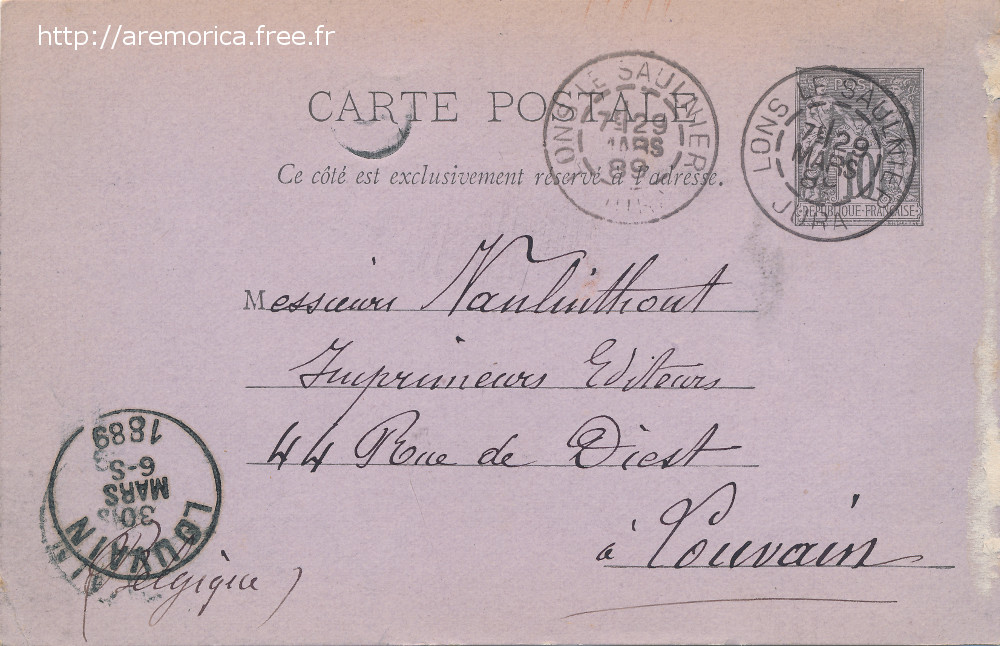 http://aremorica.free.fr
CARTE POSTALE
Ce côté est exclusivement réservé à l'adresse.
LONS-LE-SAULNIER
7E 29
MARS
89
JURA
LONS-LE-SAULNIER
7E 29
MARS
JURA
POSTES
10
REPUBLIQUE FRANÇAISE
Messieurs Vanlinthout
Imprimeurs Editeurs
44 Rue de Diest
à Louvain
(Belgique)
LOUVAIN
30
MARS
6-S
1889